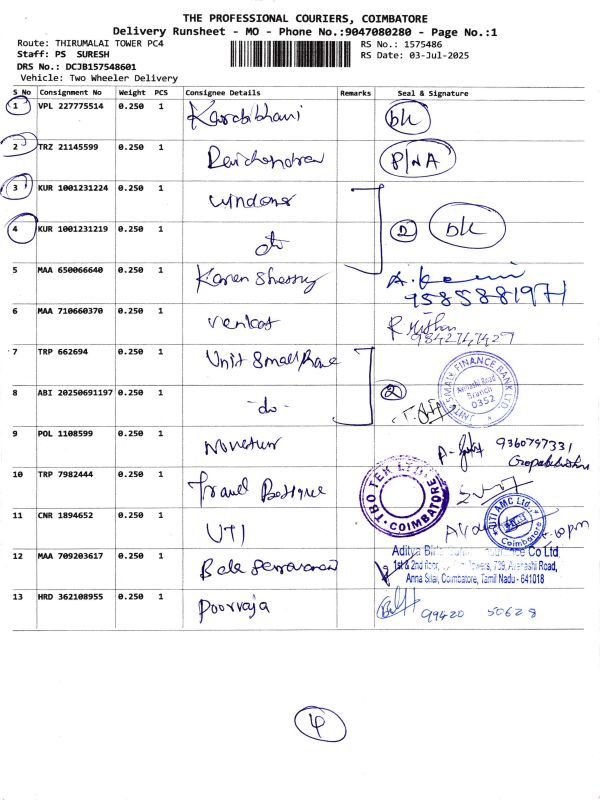 THE PROFESSIONAL COURIERS, COIMBATORE
Delivery Runsheet - MO - Phone No.:9047080280 - Page No.:1
Route: THIRUMALAI TOWER PC4
RS No.: 1575486
Staff: PS SURESH
RS Date: 03-Jul-2025
DRS No.: DCJB157548601
Vehicle: Two Wheeler Delivery
S No Consignment No Weight PCS Consignee Details Remarks Seal & Signature
1 VPL 227775514 0.250 1 bk
2 TRZ 21145599 0.250 1 Ravichandran P/NA
3 KUR 1001231224 0.250 1 Windons
4 KUR 1001231219 0.250 1 do 2 bk
5 MAA 650066640 0.250 1 Karen Sherry 9585881971
6 MAA 710660370 0.250 1 Venkat 9842747427
7 TRP 662694 0.250 1 Unit Small UNIT SMALL FINANCE BANK LTD. Avinashi Road Branch 0352
8 ABI 20250691197 0.250 1 -do- 2
9 POL 1108599 0.250 1 9360797331
Gopalakrishnan
10 TRP 7982444 0.250 1 Travel Boutique TBO TEK LTD. COIMBATORE
11 CNR 1894652 0.250 1 UTI UTI AMC Ltd., Coimbatore
12 MAA 709203617 0.250 1 Bala Saravanan Aditya Insurance Co Ltd
1st & 2nd floor, Towers, 739, Avanashi Road,
Anna Silai, Coimbatore, Tamil Nadu - 641018
13 HRD 362108955 0.250 1 Poorvaja 99420 50628
4